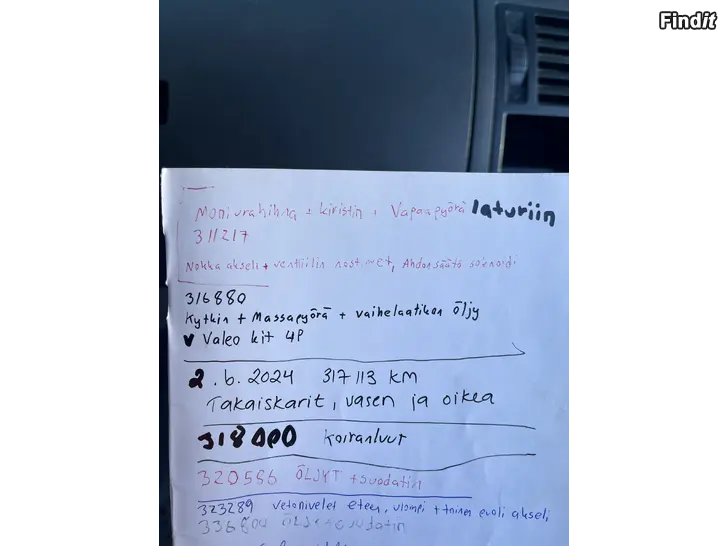 Findit
Moniurahihna + kiristin + Vapaapyörä laturiin
311217
Nokka akseli + venttiilin nostimet, Ahdonsäätö solenoidi
316880
Kytkin + Massapyörä + vaihelaatikon öljy
Valeo kit 4P
2.6.2024 317113 KM
Takaiskarit, vasen ja oikea
318000 Koiranluut
320586 ÖLJYT + suodatin
323289 vetonivelet eteen, ulompi +